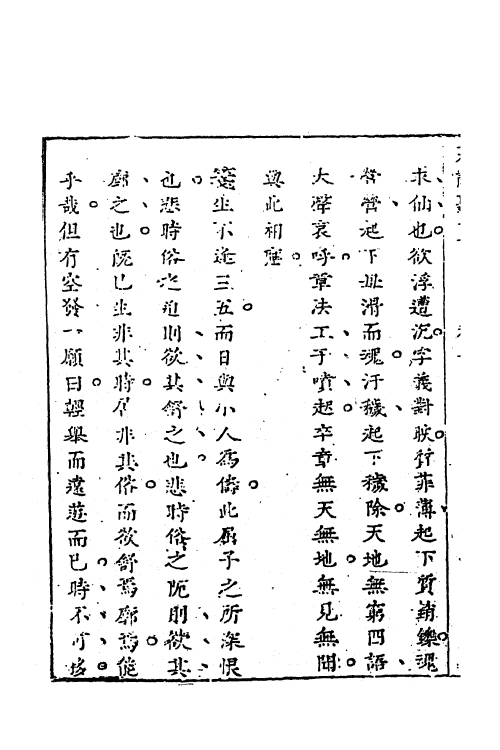 求仙也欲浮遭沉字義對映行菲薄起下質銷鑠魂
營營起下毋滑而魂汙穢起下穢除天地無窮四語
大聲哀呼章法工于噴起卒章無天無地無見無聞
與此相應
生不逢三五而日與小人為儔此屈子之所深恨
也悲時俗之迫則欲其舒之也悲時俗之阨則欲其
廓之也既已生非其時居非其俗而欲舒焉廓焉能
乎哉但有空發一願曰輕舉而遠遊而已時不可移